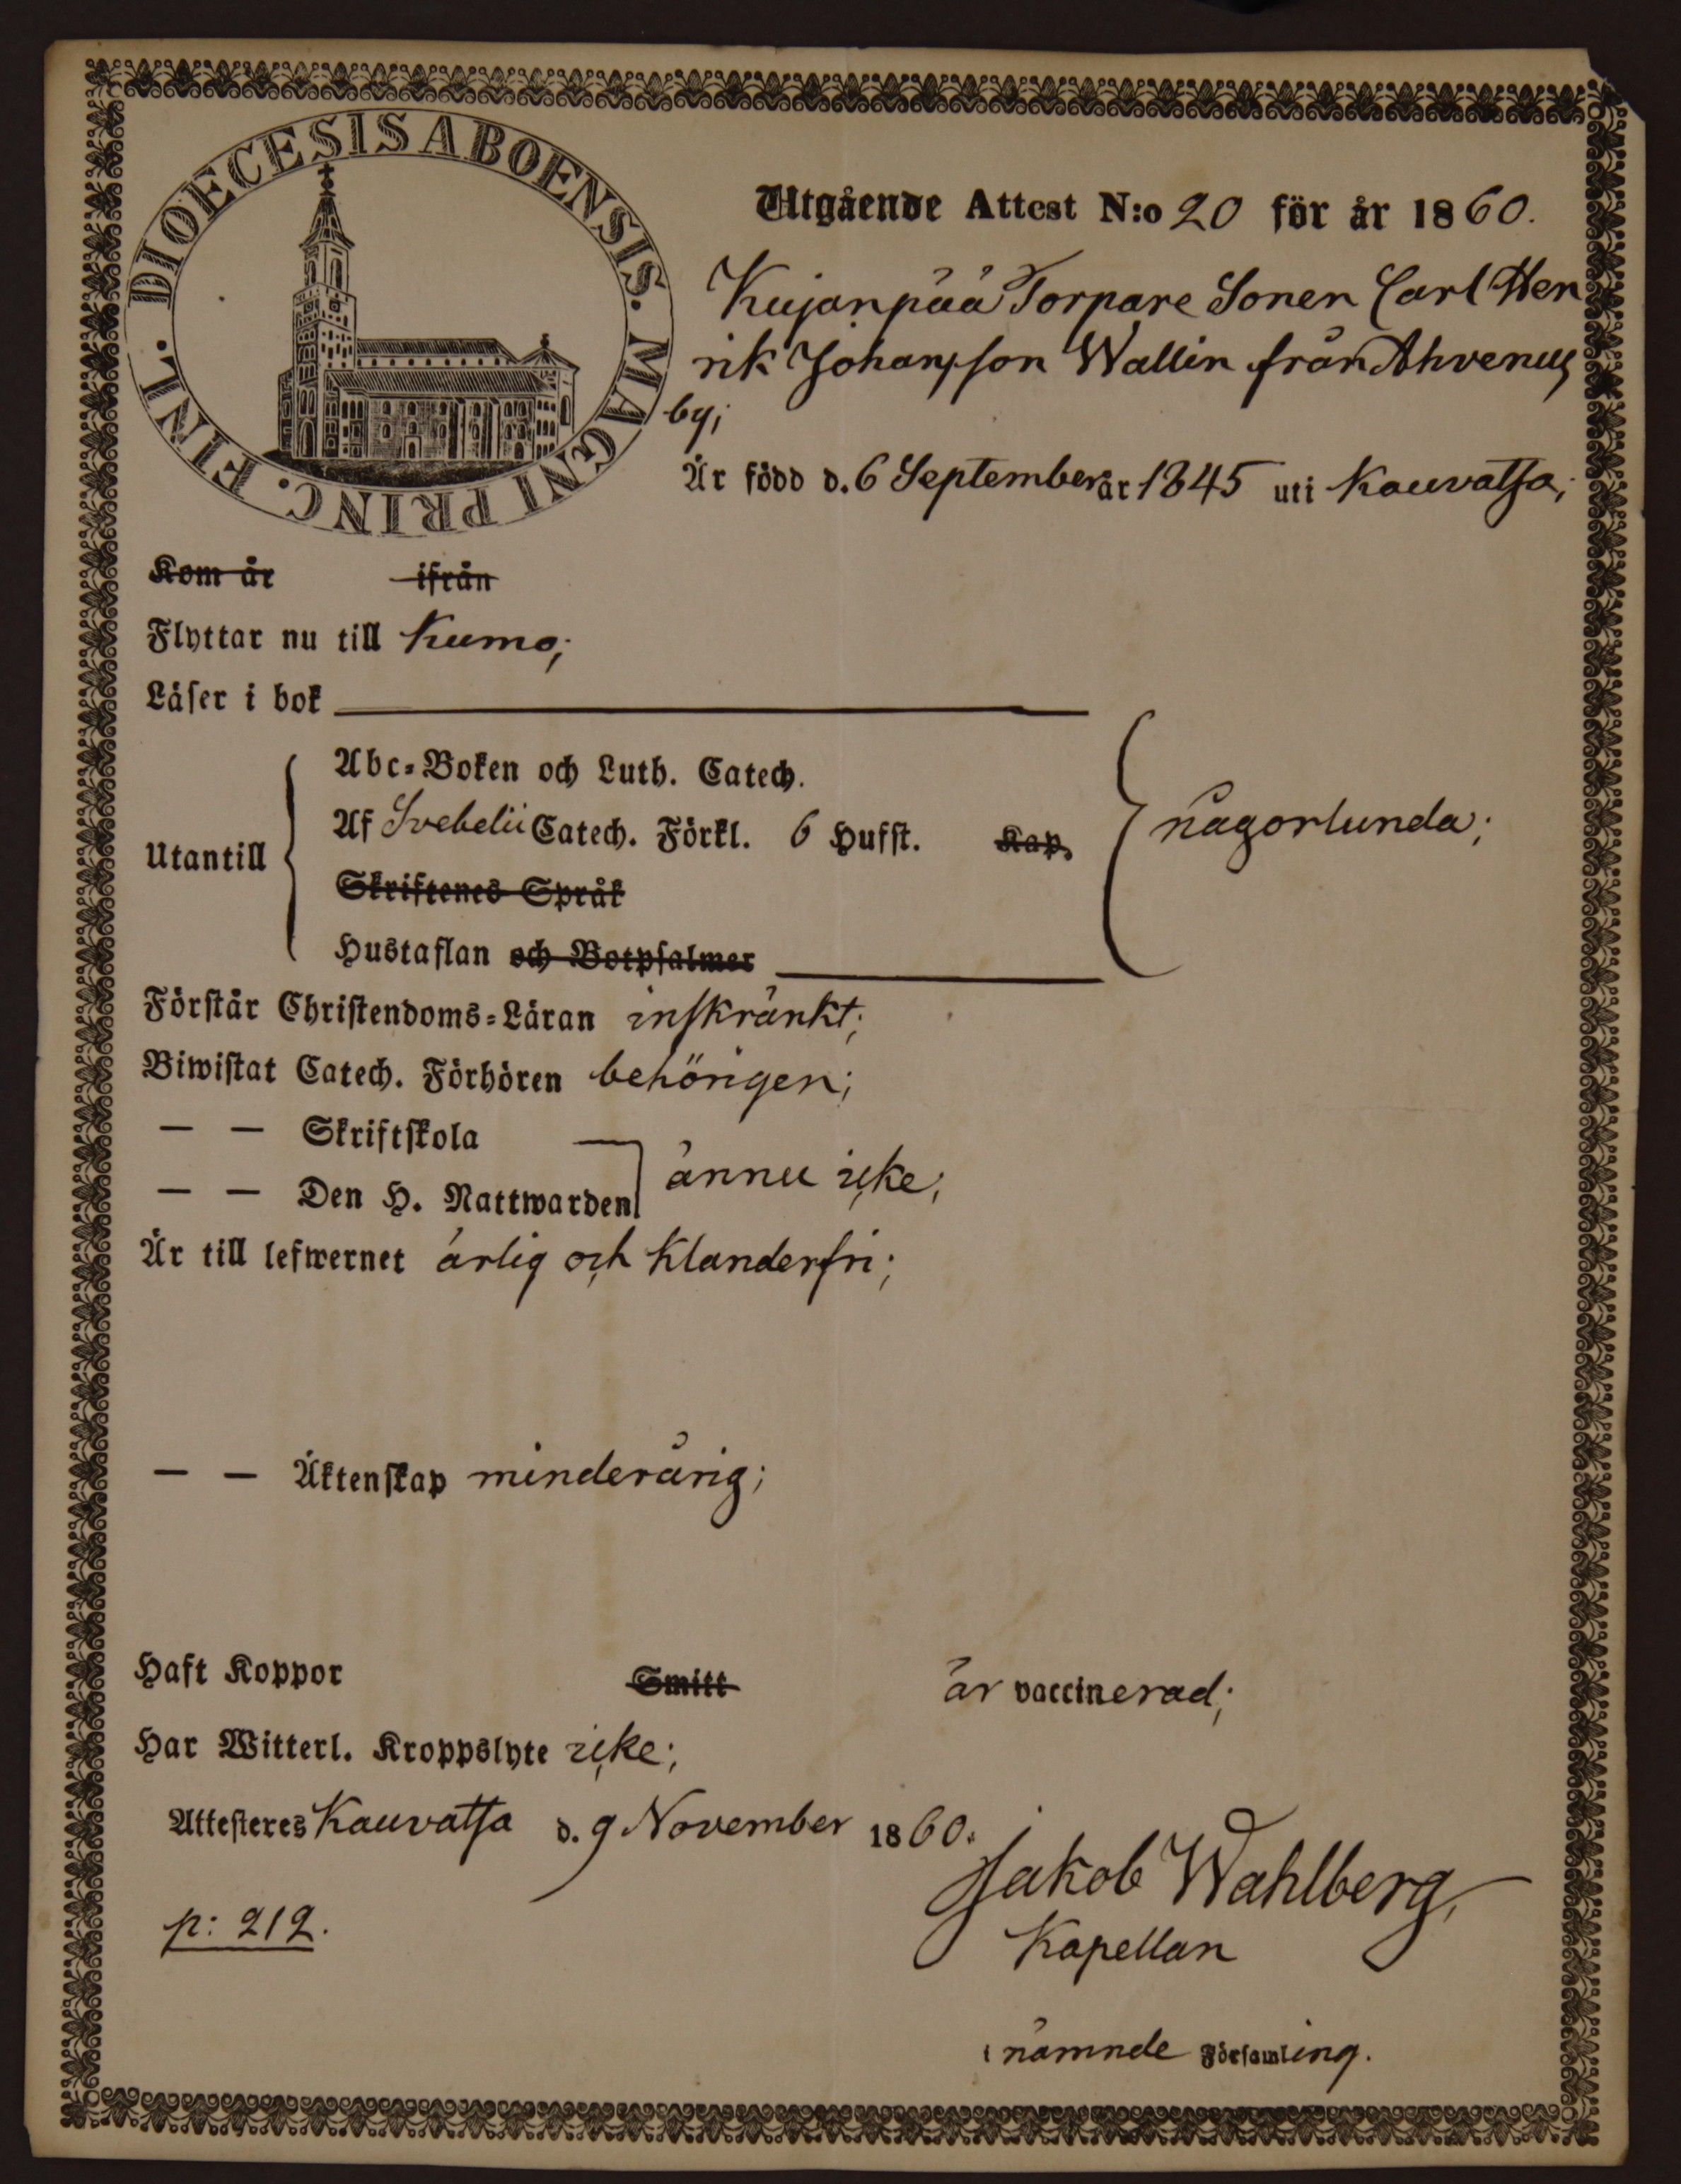 DIOECESIS ABOENSIS. MAGNI PRINC. FINL.
Utgående Attest N:o 20 för år 1860.
Kujanpää Torpare Sonen Carl Hen
rik Johansson Wallin från Ahvenus
by;
Är född d. 6 September år 1845 uti Kauvatsa;
Kom år ifrån
Flyttar nu till Kumo;
Läser i bok
Abc-Boken och Luth. Catech.
Af Svebelii Catech. Förkl. 6 Hufst. Kap.
någorlunda;
Utantill
Skriftenes Språk
Hustaflan och Botpsalmer
Förstår Christendoms-Läran inskränkt;
Biwistat Catech. Förhören behörigen;
— — Skriftskola
— — Den H. Nattwarden ännu icke;
Är till lefwernet ärlig och klanderfri;
— — Äktenskap minderårig;
Haft Koppor Smitt är vaccinerad;
Har Witterl. Kroppslyte icke;
Attesteres Kauvatsa d. 9 November 1860.
Jakob Wahlberg,
p: 212.
Kapellan
i nämnde Församling.